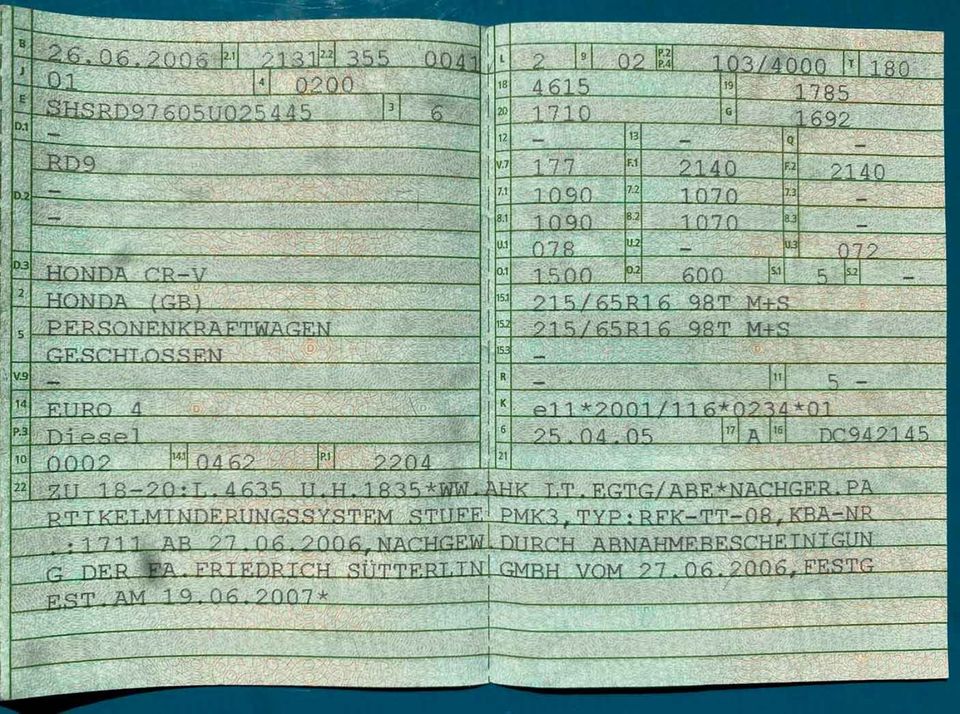 B 26.06.2006 2.1 2131 2.2 355 0041
J 01 4 0200
E SHSRD97605U025445 3 6
D.1 –
RD9
D.2 –
–
D.3 HONDA CR-V
2 HONDA (GB)
5 PERSONENKRAFTWAGEN
GESCHLOSSEN
V.9 –
14 EURO 4
P.3 Diesel
10 0002 14.1 0462 P.1 2204
L 2 9 02 P.2 P.4 103/4000 T 180
18 4615 19 1785
20 1710 G 1692
12 – 13 – Q –
V.7 177 F.1 2140 F.2 2140
7.1 1090 7.2 1070 7.3 –
8.1 1090 8.2 1070 8.3 –
U.1 078 U.2 – U.3 072
O.1 1500 O.2 600 S.1 5 S.2 –
15.1 215/65R16 98T M+S
15.2 215/65R16 98T M+S
15.3 –
R – 11 5 –
K e11*2001/116*0234*01
6 25.04.05 17 A 16 DC942145
21
22 ZU 18-20:L.4635 U.H.1835*WW.AHK LT.EGTG/ABE*NACHGER.PA
RTIKELMINDERUNGSSYSTEM STUFE PMK3,TYP:RFK-TT-08,KBA-NR
.:1711 AB 27.06.2006,NACHGEW.DURCH ABNAHMEBESCHEINIGUN
G DER FA.FRIEDRICH SÜTTERLIN GMBH VOM 27.06.2006,FESTG
EST.AM 19.06.2007*